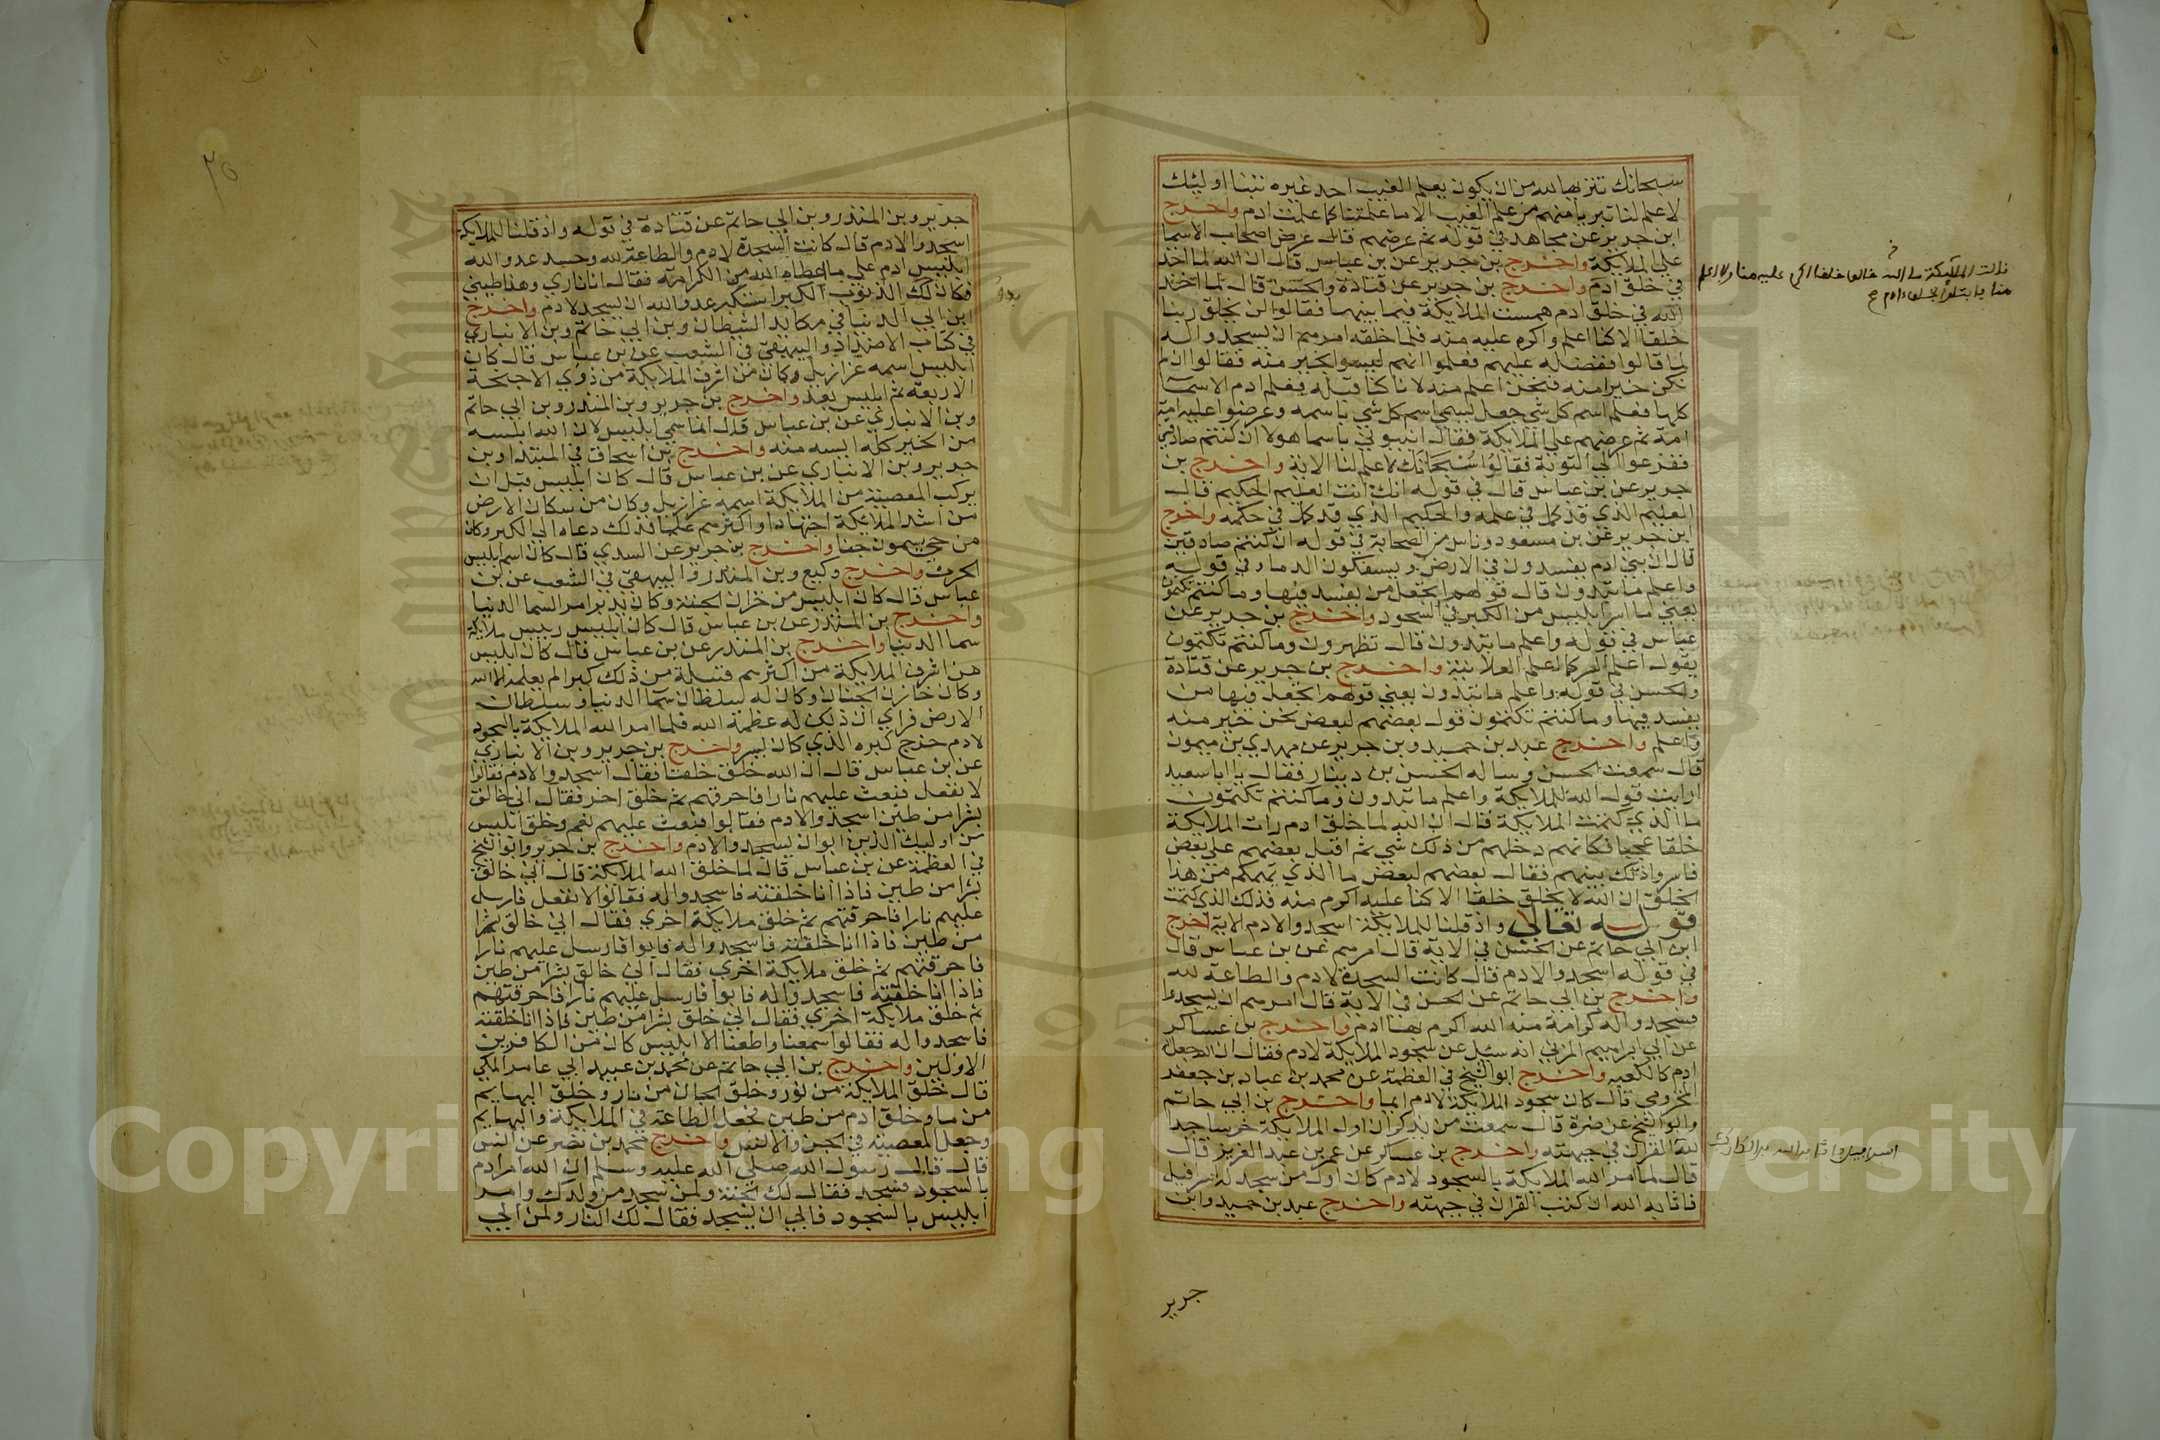 سبحانك تنزيها لله من ان يكون يعلم الغيب احد غيره تبنا اليك
لا علم لنا تبريا منهم من علم الغيب الا ما علمتنا كما علمت ادم واخرج
ابن جرير عن مجاهد في قوله ثم عرضهم قال عرض اصحاب الاسما
علي الملايكة واخرج بن جرير عن بن عباس قال ان الله لما اخذ
في خلق ادم واخرج بن جرير عن قتادة والحسن قال لما اخذ
الله في خلق ادم همست الملايكة فيما بينها فقالوا لن يخلق ربنا
خلقا الا كنا اعلم واكرم عليه منه فلما خلقه امرهم ان يسجدوا له
لما قالوا ففضله عليهم فعلموا انهم ليسوا بخير منه فقالوا ان لم
نكن خيرا منه فنحن اعلم منه لانا كنا قبله فعلم ادم الاسما
كلها فعلم اسم كل شي جعل يسمي اسم كل شي باسمه وعرضوا عليه امة
امة ثم عرضهم علي الملايكة فقال انبوني باسما هولا ان كنتم صادقين
ففزعوا الي التوبة فقالوا سبحانك لا علم لنا الاية واخرج بن
جرير عن بن عباس قال في قوله انك انت العليم الحكيم قال
العليم الذي قد كمل في علمه والحكيم الذي قد كمل في حكمه واخرج
ابن جرير عن بن مسعود وناس من الصحابة في قوله ان كنتم صادقين
قال ان بني ادم يفسدون في الارض ويسفكون الدما وفي قوله
واعلم ما تبدون قال قولهم اتجعل من يفسد فيها وما كنتم تكتمون
يعني ما اسر ابليس من الكبر في السجود واخرج بن جرير عن
عباس في قوله واعلم ما تبدون قال تظهرون وما كنتم تكتمون
يقول اعلم السر كما اعلم العلانية واخرج بن جرير عن قتادة
والحسن في قوله واعلم ما تبدون يعني قولهم اتجعل فيها من
يفسد فيها وما كنتم تكتمون قول بعضهم لبعض نحن خير منه
واعلم واخرج عبد بن حميد وبن جرير عن مهدي بن ميمون
قال سمعت الحسن وساله الحسن بن دينار فقال يا ابا سعيد
ارايت قول الله للملايكة واعلم ما تبدون وما كنتم تكتمون
ما الذي كتمت الملايكة قال ان الله لما خلق ادم رات الملايكة
خلقا عجبا فكانهم دخلهم من ذلك شي ثم اقبل بعضهم علي بعض
فاسروا ذلك بينهم فقال بعضهم لبعض ما الذي يهمكم من هذا
الخلق ان الله لا يخلق خلقا الا كنا عليه اكرم منه فذلك الذي كتمت
قوله تعالي واذ قلنا للملايكة اسجدوا لادم الاية اخرج
ابن ابي حاتم عن الحسن في الاية قال امرهم عن بن عباس قال
في قوله اسجدوا لادم قال كانت السجدة لادم والطاعة لله
واخرج بن ابي حاتم عن الحسن في الاية قال امرهم ان يسجدوا
فسجدوا له كرامة من الله اكرم بها ادم واخرج بن عساكر
عن ابي ابراهيم المزني انه سيل عن سجود الملايكة لادم فقال ان الله جعل
ادم كالكعبة واخرج ابو الشيخ في العظمة عن محمد بن عباد بن جعفر
المخزومي قال كان سجود الملايكة لادم ايما واخرج بن ابي حاتم
وابو الشيخ عن ضمرة قال سمعت من يذكر ان اول الملايكة خر ساجدا
لله القران في جبهته واخرج بن عساكر عن عمر بن عبد العزيز قال
قال لما امر الله الملايكة بالسجود لادم كان اول من سجد له اسرافيل
فاثابه الله ان كتب القران في جبهته واخرج عبد بن حميد وابن
جرير
جرير وبن المنذر وبن ابي حاتم عن قتادة في قوله واذ قلنا للملايكة
اسجدوا لادم قال كانت السجدة لادم والطاعة لله وحسد عدو الله
ابليس ادم علي ما اعطاه الله من الكرامة فقال انا ناري وهذا طيني
فكان ذلك الذنوب الكبر استكبر عدو الله ان يسجد لادم واخرج
ابن ابي الدنيا في مكايد الشيطان وبن ابي حاتم وبن الانباري
في كتاب الاضداد والبيهقي في الشعب عن بن عباس قال كان
ابليس اسمه عزازيل وكان من اشرف الملايكة من ذوي الاجنحة
الاربعة ثم ابليس بعد واخرج بن جرير وبن المنذر وبن ابي حاتم
وبن الانباري عن بن عباس قال انما سمي ابليس لان الله ابلسه
من الخير كله ايسه منه واخرج بن اسحاق في المبتدا وبن
جرير وبن الانباري عن بن عباس قال كان ابليس قبل ان
يركب المعصية من الملايكة اسمه عزازيل وكان من سكان الارض
من اشد الملايكة اجتهادا واكثرهم علما فذلك دعاه الي الكبر وكان
من حي يسمون جنا واخرج بن جرير عن السدي قال كان اسم ابليس
الحرث واخرج وكيع وبن المنذر والبيهقي في الشعب عن بن
عباس قال كان ابليس من خزان الجنة وكان يدبر امر السما الدنيا
واخرج بن المنذر عن بن عباس قال كان ابليس رييس ملايكة
سما الدنيا واخرج بن المنذر عن بن عباس قال كان ابليس
من اشرف الملايكة من اكثرهم قبيلة من ذلك كبرا لم يعلمه الا الله
وكان خازن الجنان وكان له سلطان سما الدنيا وسلطان
الارض فراي ان ذلك له عظمة الله فلما امر الله الملايكة بالسجود
لادم خرج كبره الذي كان يسر واخرج بن جرير وبن الانباري
عن بن عباس قال ان الله خلق خلقا فقال اسجدوا لادم فقالوا
لا نفعل فبعث عليهم نارا فاحرقتهم ثم خلق اخر فقال اني خالق
بشرا من طين اسجدوا لادم فقالوا فبعث عليهم نعم وخلق ابليس
من اوليك الذين ابوا ان يسجدوا لادم واخرج بن جرير وابو الشيخ
في العظمة عن بن عباس قال لما خلق الله الملايكة قال اني خالق
بشرا من طين فاذا انا خلقته فاسجدوا له فقالوا لا نفعل فارسل
عليهم نارا فاحرقتهم ثم خلق ملايكة اخري فقال اني خالق بشرا
من طين فاذا انا خلقته فاسجدوا له فابوا فارسل عليهم نارا
فاحرقتهم ثم خلق ملايكة اخري فقال اني خالق بشرا من طين
فاذا انا خلقته فاسجدوا له فابوا فارسل عليهم نارا فاحرقتهم
ثم خلق ملايكة اخري فقال اني خلق بشرا من طين فاذا انا خلقته
فاسجدوا له فقالوا سمعنا واطعنا الا ابليس كان من الكافرين
الاولين واخرج بن ابي حاتم عن محمد بن عبيد ابي عامر المكي
قال خلق الملايكة من نور وخلق الجان من نار وخلق البهايم
من ما وخلق ادم من طين فجعل الطاعة في الملايكة والبهايم
وجعل المعصية في الجن والانس واخرج محمد بن نصر عن انس
قال قال رسول الله صلي الله عليه وسلم ان الله امر ادم
بالسجود فسجد فقال لك الجنة ولمن سجد من ولدك وامر
ابليس بالسجود فابي ان يسجد فقال لك النار ولمن ابي
Copyright © King Saud University